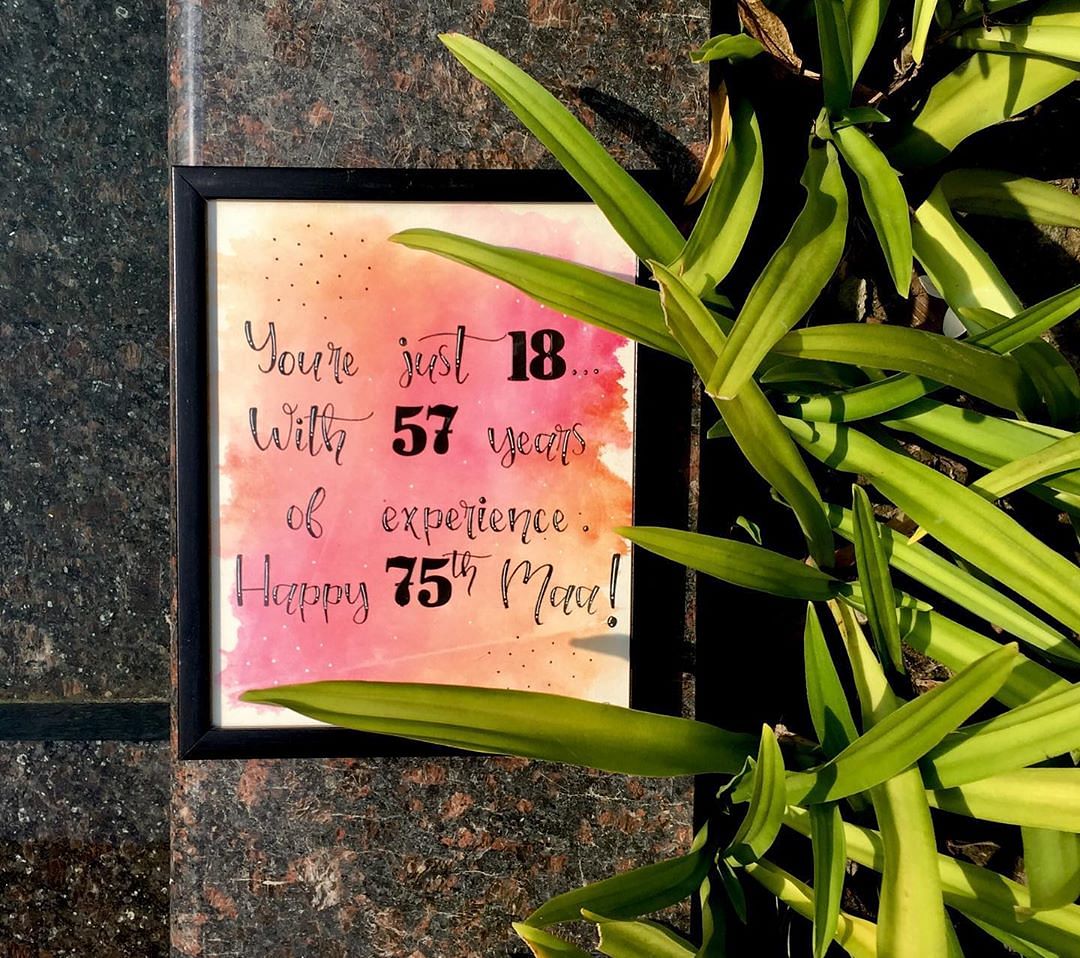 You're just 18...
With 57 years
of experience.
Happy 75th Maa!